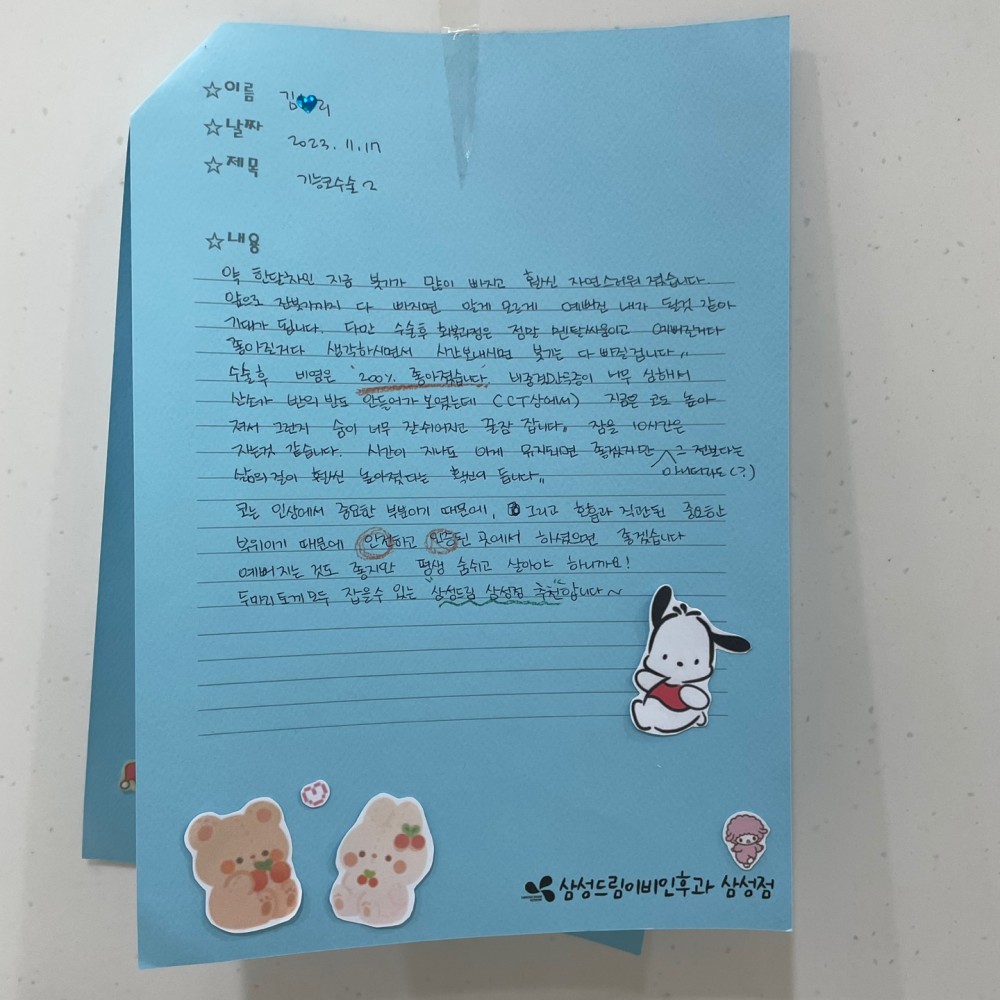 ☆이름 김 리
☆날짜 2023. 11. 17
☆제목 기능코수술 2
☆내용
약 한달차인 지금 붓기가 많이 빠지고 훨씬 자연스러워 졌습니다
앞으로 잔붓기까지 다 빠지면 알게 모르게 예뻐진 내가 될것 같아
기대가 됩니다. 다만 수술후 회복과정은 정말 멘탈싸움이고 예뻐진거다
좋아질거다 생각하시면서 시간보내시면 붓기는 다 빠질겁니다 〃
수술후 비염은 '200% 좋아졌습니다' 비중격만곡증이 너무 심해서
산소가 반의 반도 안들어가 보였는데 (CT상에서) 지금은 코도 높아
져서 그런지 숨이 너무 잘쉬어지고 꿀잠 잡니다〃 잠을 10시간은
자는것 같습니다. 시간이 지나도 이게 유지되면 좋겠지만 아니더라도(?) 그 전보다는
삶의 질이 훨씬 높아졌다는 확신이 듭니다〃
코는 인상에서 중요한 부분이기 때문에, 그리고 호흡과 직관된 중요한
부위이기 때문에 안전하고 인증된 곳에서 하셨으면 좋겠습니다
예뻐지는 것도 좋지만 평생 숨쉬고 살아야 하니까요!
두마리 토끼 모두 잡을수 있는 "삼성드림 삼성점 추천"합니다~
삼성드림이비인후과 삼성점